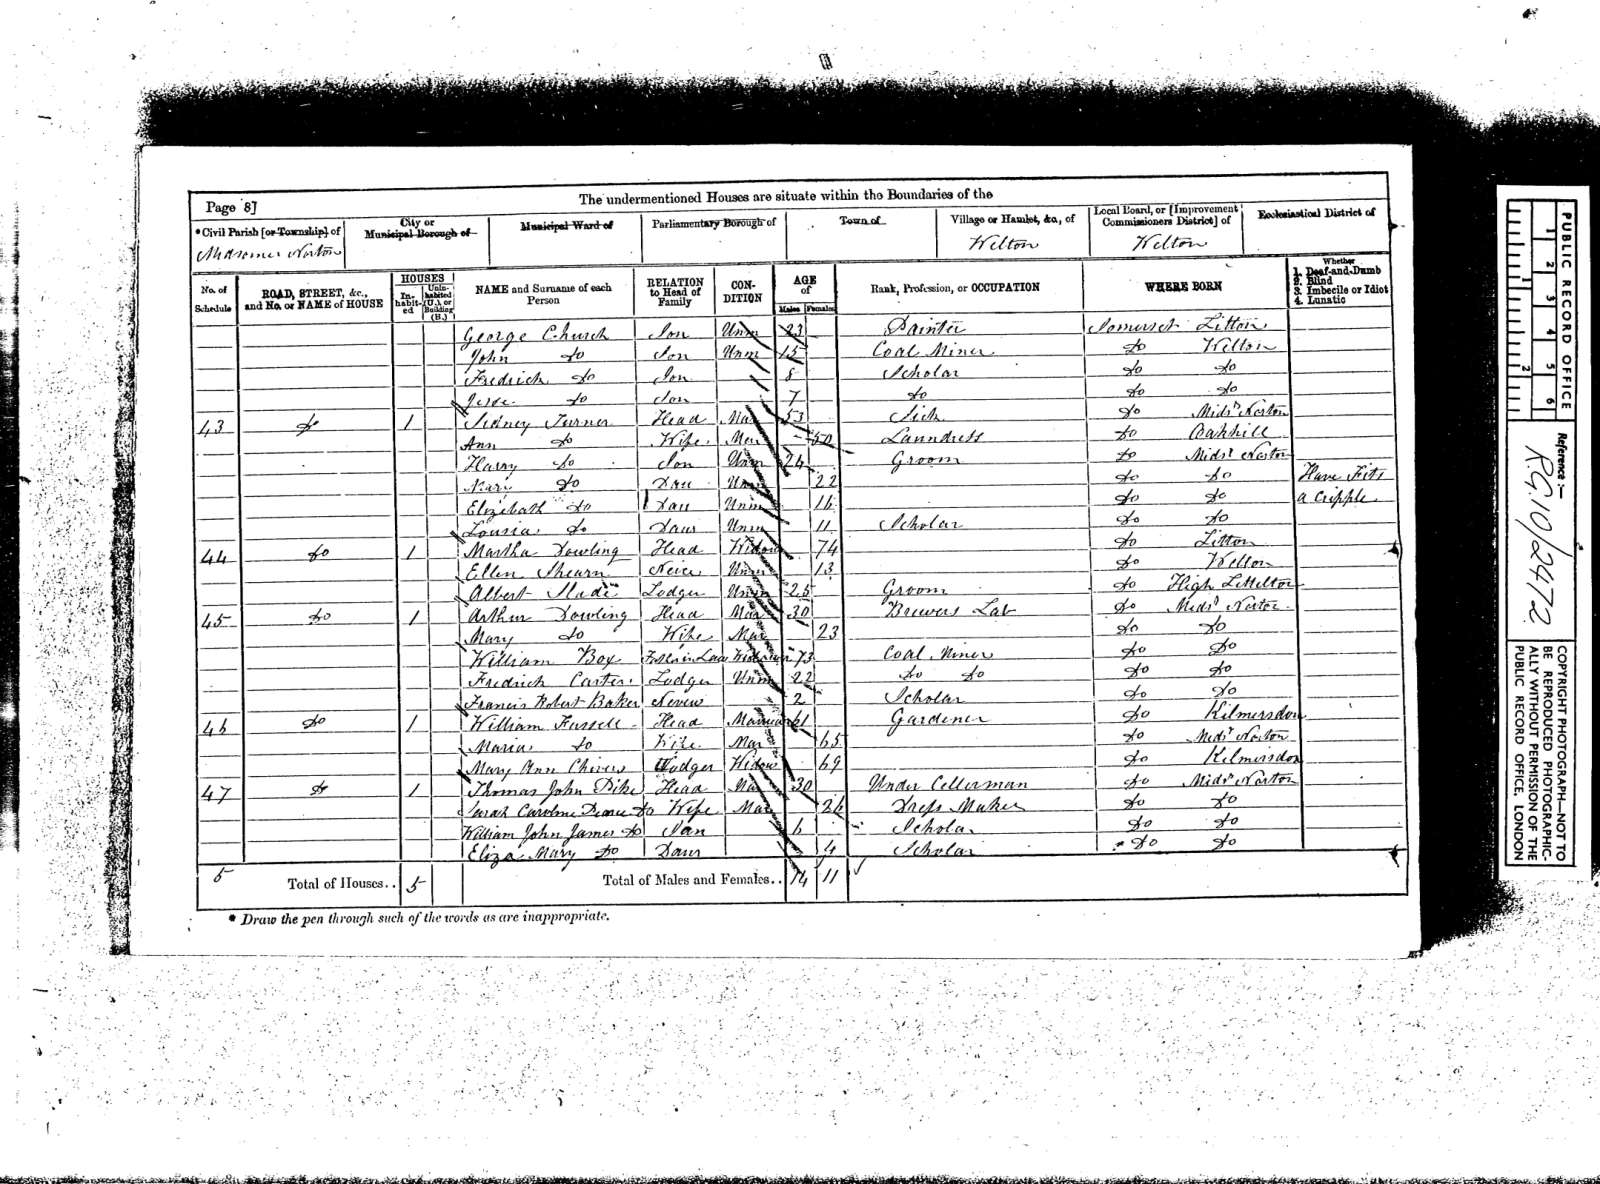 The undermentioned Houses are situate within the Boundaries of the
Page 8]
*Civil Parish [or Township] of
Midsomer Norton
City or
Municipal Borough of
Municipal Ward of
Parliamentary Borough of
Town of
Village or Hamlet, &c., of
Welton
Local Board, or [Improvement
Commissioners District] of
Welton
Ecclesiastical District of
No. of
Schedule
ROAD, STREET, &c.,
and No. or NAME of HOUSE
HOUSES
In-
habit-
ed
Unin-
habited
(U.), or
Building
(B.)
NAME and Surname of each
Person
RELATION
to Head of
Family
CON-
DITION
AGE
of
Males Females
Rank, Profession, or OCCUPATION
WHERE BORN
Whether
1. Deaf-and-Dumb
2. Blind
3. Imbecile or Idiot
4. Lunatic
George Church Son Unm 23 Painter Somerset Litton
John Do Son Unm 15 Coal Miner Do Welton
Fredrick Do Son 8 Scholar Do Do
Jesse Do Son 7 Do Do Do
43 Do 1 Sidney Turner Head Mar 53 Sick Do Midsr Norton
Ann Do Wife Mar 50 Laundress Do Oakhill
Harry Do Son Unm 24 Groom Do Midsr Norton
Mary Do Dau Unm 22 Do Do Have Fits
Elizebath Do Dau Unm 16 Do Do a Cripple
Lousia Do Daur Unm 11 Scholar Do Do
44 Do 1 Martha Dowling Head Widow 74 Do Litton
Ellen Shearn Neice Unm 13 Do Welton
Albert Slade Lodger Unm 25 Groom Do High Littelton
45 Do 1 Arthur Dowling Head Mar 30 Brewers Lab Do Midsr Norton
Mary Do Wife Mar 23 Do Do
William Box Widower 73 Coal Miner Do Do
Fredrick Carter Lodger Unm 22 Do Do Do Do
Francis Robert Baker Nevew 2 Scholar Do Do
46 Do 1 William Fussell Head 61 Gardener Do Kilmersdon
Maria Do Wife Mar 65 Do Midsr Norton
Mary Ann Chivers Lodger Widow 69 Do Kilmersdon
47 Do 1 Thomas John Pike Head Mar 30 Under Cellerman Do Midsr Norton
Sarah Caroline Do Wife Mar 26 Dress Maker Do Do
William John James Do Son 6 Scholar Do Do
Eliza Mary Do Daur 4 Scholar Do Do
5 Total of Houses.. 5 Total of Males and Females.. 14 11
* Draw the pen through such of the words as are inappropriate.
PUBLIC RECORD OFFICE
1 2 3 4 5 6
1 2
Reference:-
RG10/2472
COPYRIGHT PHOTOGRAPH—NOT TO
BE REPRODUCED PHOTOGRAPHIC-
ALLY WITHOUT PERMISSION OF THE
PUBLIC RECORD OFFICE, LONDON